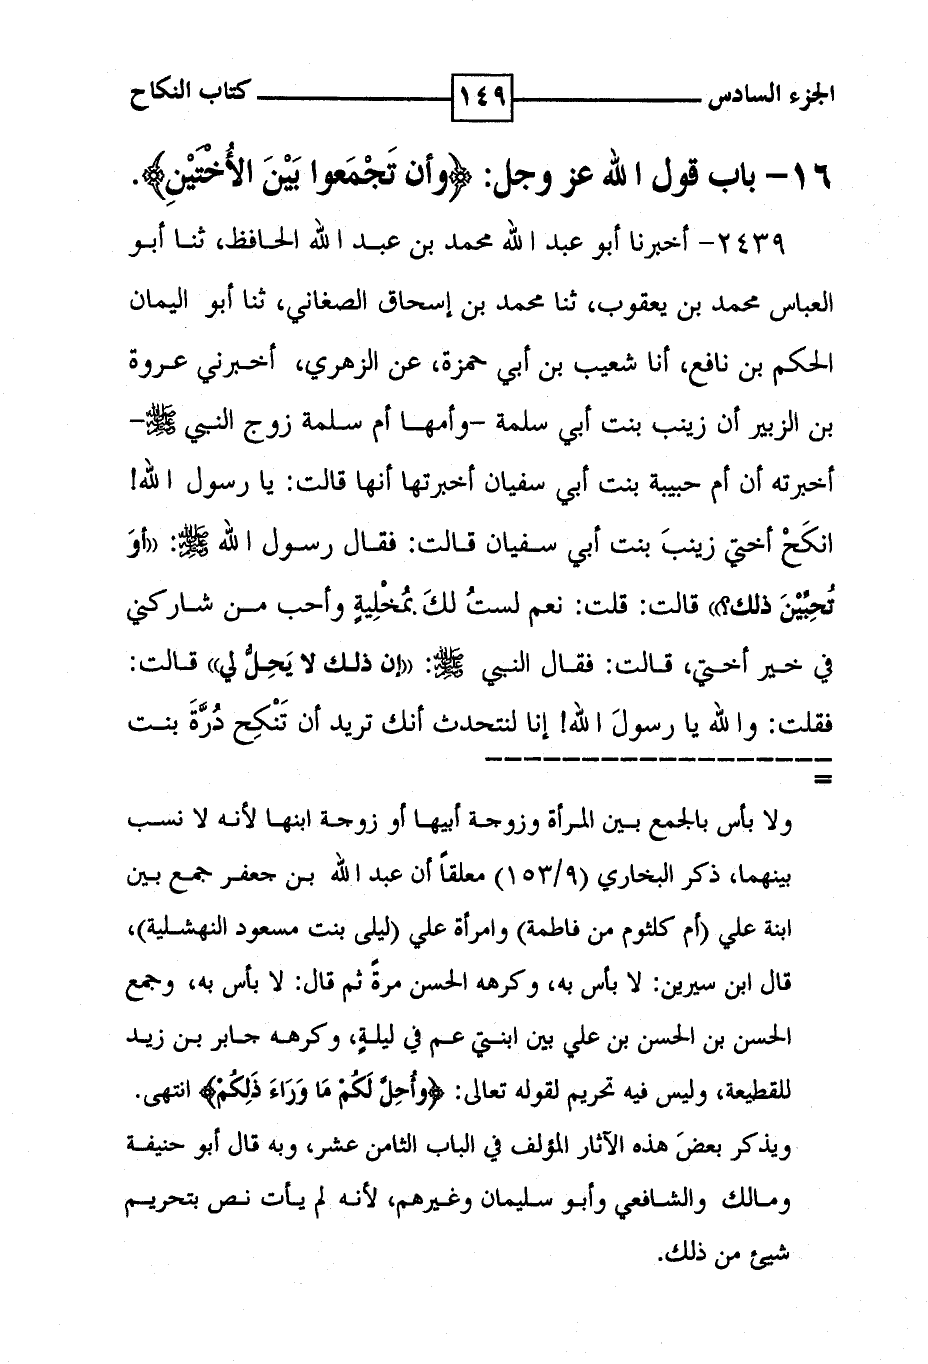 الجزء السادس ١٤٩ كتاب النكاح
١٦- باب قول الله عز وجل: ﴿وأن تَجْمَعوا بَيْنَ الأُخْتَيْنِ﴾.
٢٤٣٩- أخبرنا أبو عبد الله محمد بن عبد الله الحافظ، ثنا أبو
العباس محمد بن يعقوب، ثنا محمد بن إسحاق الصغاني، ثنا أبو اليمان
الحكم بن نافع، أنا شعيب بن أبي حمزة، عن الزهري، أخبرني عروة
بن الزبير أن زينب بنت أبي سلمة -وأمها أم سلمة زوج النبي ﷺ-
أخبرته أن أم حبيبة بنت أبي سفيان أخبرتها أنها قالت: يا رسول الله!
انكَحْ أختي زينبَ بنت أبي سفيان قالت: فقال رسول الله ﷺ: «أوَ
تُحبِّيْنَ ذلك؟» قالت: قلت: نعم لستُ لكَ بمُخْلِيةٍ وأحب من شاركني
في خير أختي، قالت: فقال النبي ﷺ: «إن ذلك لا يَحِلُّ لي» قالت:
فقلت: والله يا رسولَ الله! إنا لنتحدث أنك تريد أن تَنْكِح دُرَّةَ بنت
=
ولا بأس بالجمع بين المرأة وزوجة أبيها أو زوجة ابنها لأنه لا نسب
بينهما، ذكر البخاري (١٥٣/٩) معلقاً أن عبد الله بن جعفر جمع بين
ابنة علي (أم كلثوم من فاطمة) وامرأة علي (ليلى بنت مسعود النهشلية)،
قال ابن سيرين: لا بأس به، وكرهه الحسن مرةً ثم قال: لا بأس به، وجمع
الحسن بن الحسن بن علي بين ابنتي عم في ليلةٍ، وكرهه جابر بن زيد
للقطيعة، وليس فيه تحريم لقوله تعالى: ﴿وأُحِلَّ لَكُمْ مَا وَرَاءَ ذَلِكُمْ﴾ انتهى.
ويذكر بعضَ هذه الآثار المؤلف في الباب الثامن عشر، وبه قال أبو حنيفة
ومالك والشافعي وأبو سليمان وغيرهم، لأنه لم يأت نص بتحريم
شيئ من ذلك.